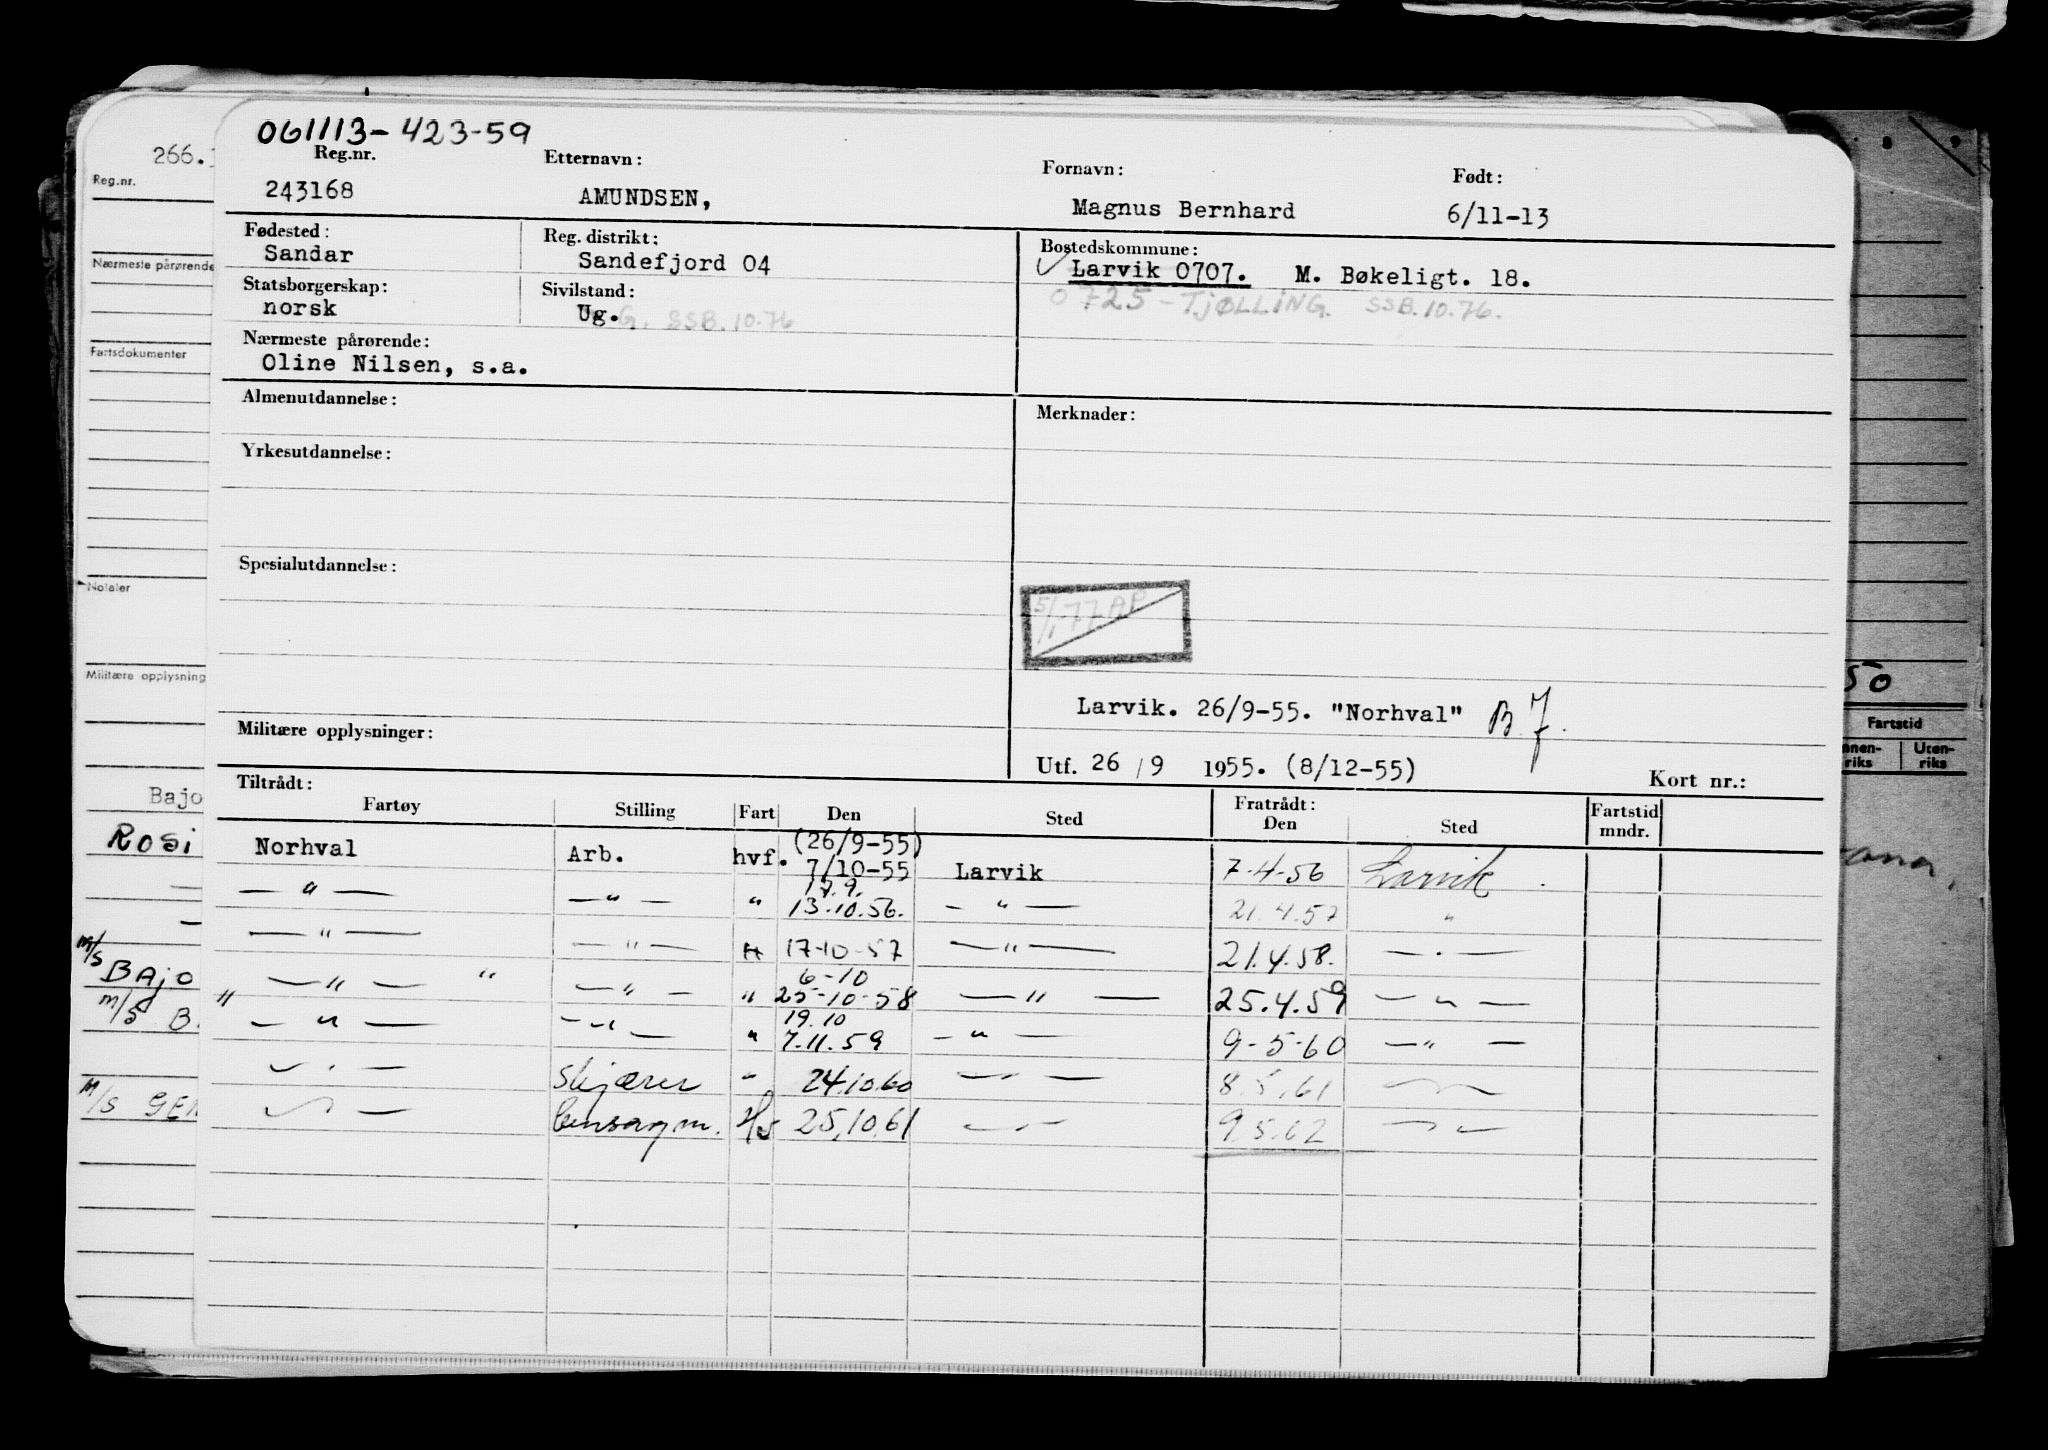 061113-423-59
Reg.nr. Etternavn: Fornavn: Født:
243168 AMUNDSEN, Magnus Bernhard 6/11-13
Fødested: Reg. distrikt: Bostedskommune:
Sandar Sandefjord 04 ✓ Larvik 0707. M. Bøkeligt. 18.
Statsborgerskap: Sivilstand: 0725-TJØLLING. SSB.10.76.
norsk Ug. G. SSB.10.76
Nærmeste pårørende:
Oline Nilsen, s.a.
Almenutdannelse: Merknader:
Yrkesutdannelse:
Spesialutdannelse:
5/1-77 AP
Larvik. 26/9-55. "Norhval" B 7.
Militære opplysninger:
Utf. 26/9 1955. (8/12-55) Kort nr.:
Tiltrådt: Fratrådt:
Fartøy Stilling Fart Den Sted Den Sted Fartstid mndr.
Norhval Arb. hvf. (26/9-55) 7/10-55 Larvik 7-4-56 Larvik
— " — — " — " 17.9. 13.10.56. — " — 21.4.57 "
— " — — " — " 17-10-57 — " — 21.4.58. — " —
— " — " — " — " 6-10 25-10-58 — " — 25.4.59 — " —
" — " — — " — " 19.10 7.11.59 — " — 9-5-60 — " —
— " — Skjærer " 24.10.60 — " — 8.5.61 — " —
— " — bensagm. Hv 25.10.61 — " — 9.5.62 — " —
266.
Reg.nr.
Nærmeste pårørende
Fartsdokumenter
Notater
Militære opplysning
Bajo
Rosi
M/S BAJO
M/S B
M/S GEN
50
Fartstid
nnen-riks Uten-riks